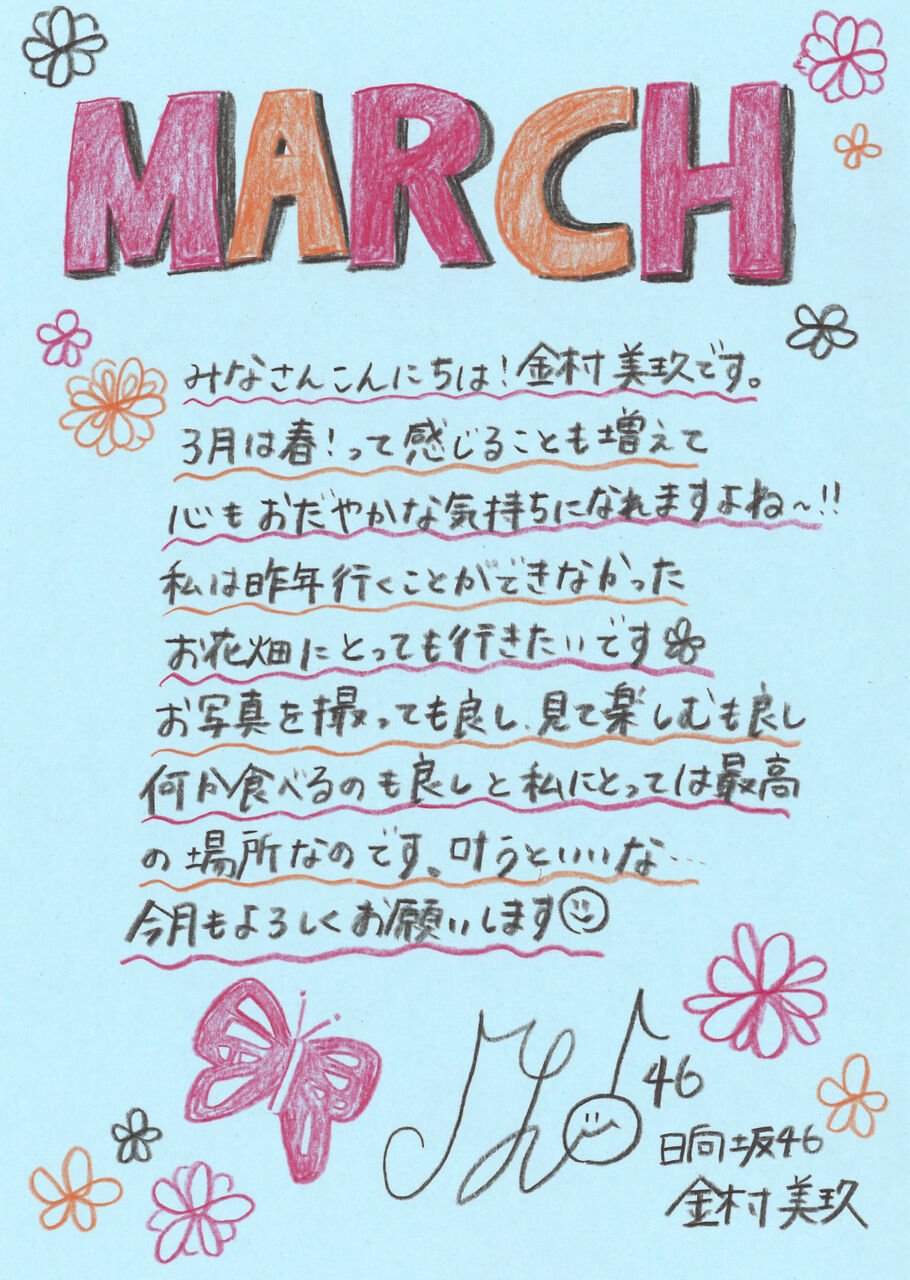 MARCH
みなさんこんにちは！金村美玖です。
3月は春！って感じることも増えて
心もおだやかな気持ちになれますよね〜!!
私は昨年行くことができなかった
お花畑にとっても行きたいです
お写真を撮っても良し、見て楽しむも良し
何か食べるのも良しと私にとっては最高
の場所なのです。叶うといいな…
今月もよろしくお願いします
46
日向坂46
金村美玖